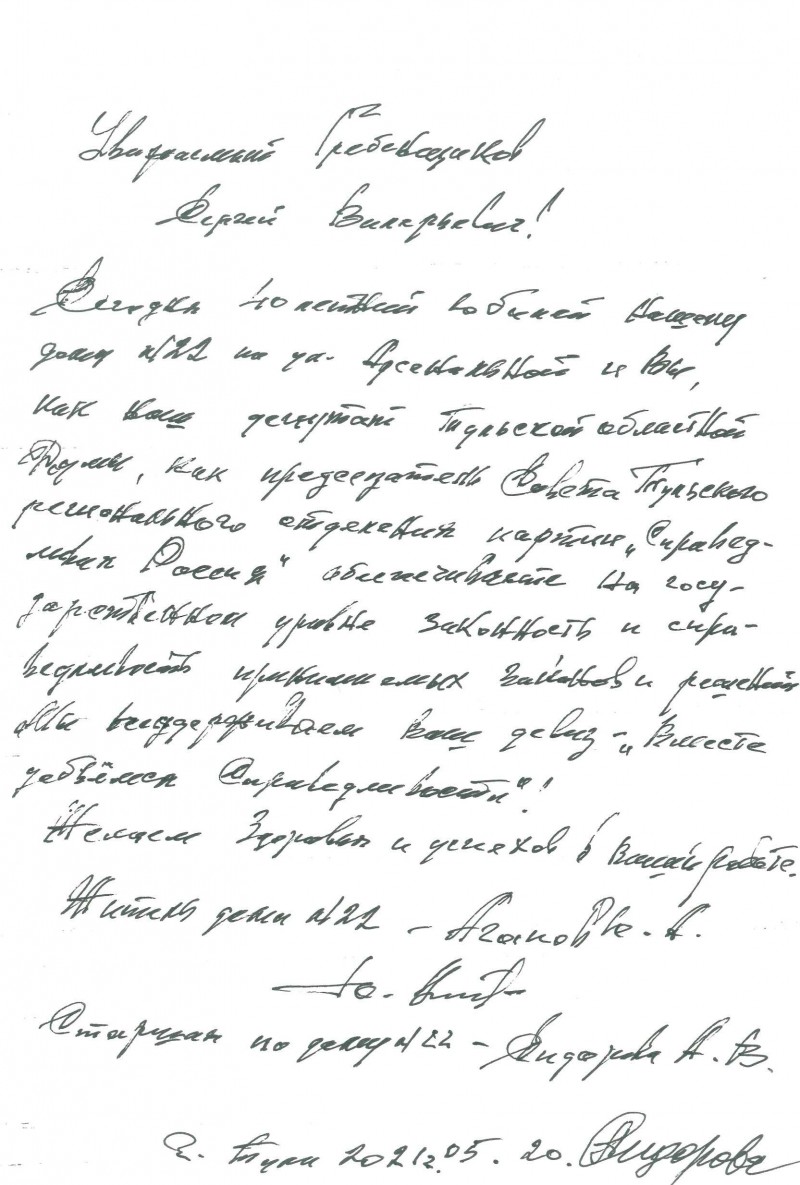 Уважаемый Гребенщиков
Сергей Валерьевич!
Сегодня 40 летний юбилей нашему
дому №22 на ул. Арсенальной и Вы,
как наш депутат Тульской областной
Думы, как председатель Совета Тульского
регионального отделения партии „Справед-
ливая Россия" обеспечиваете на госу-
дарственном уровне законность и спра-
ведливость принимаемых законов и решений
Мы поддерживаем Ваш девиз - „Вместе
добьёмся Справедливости"!
Желаем Здоровья и успехов в вашей работе.
Житель дома №22 - А.
Старшая по дому №22 - Сидорова А. В.
г. Тула 2021г. 05. 20. Сидорова